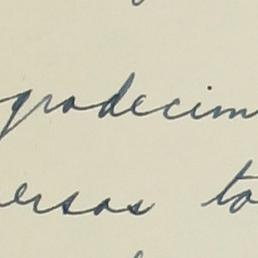 gradecim
ersos to